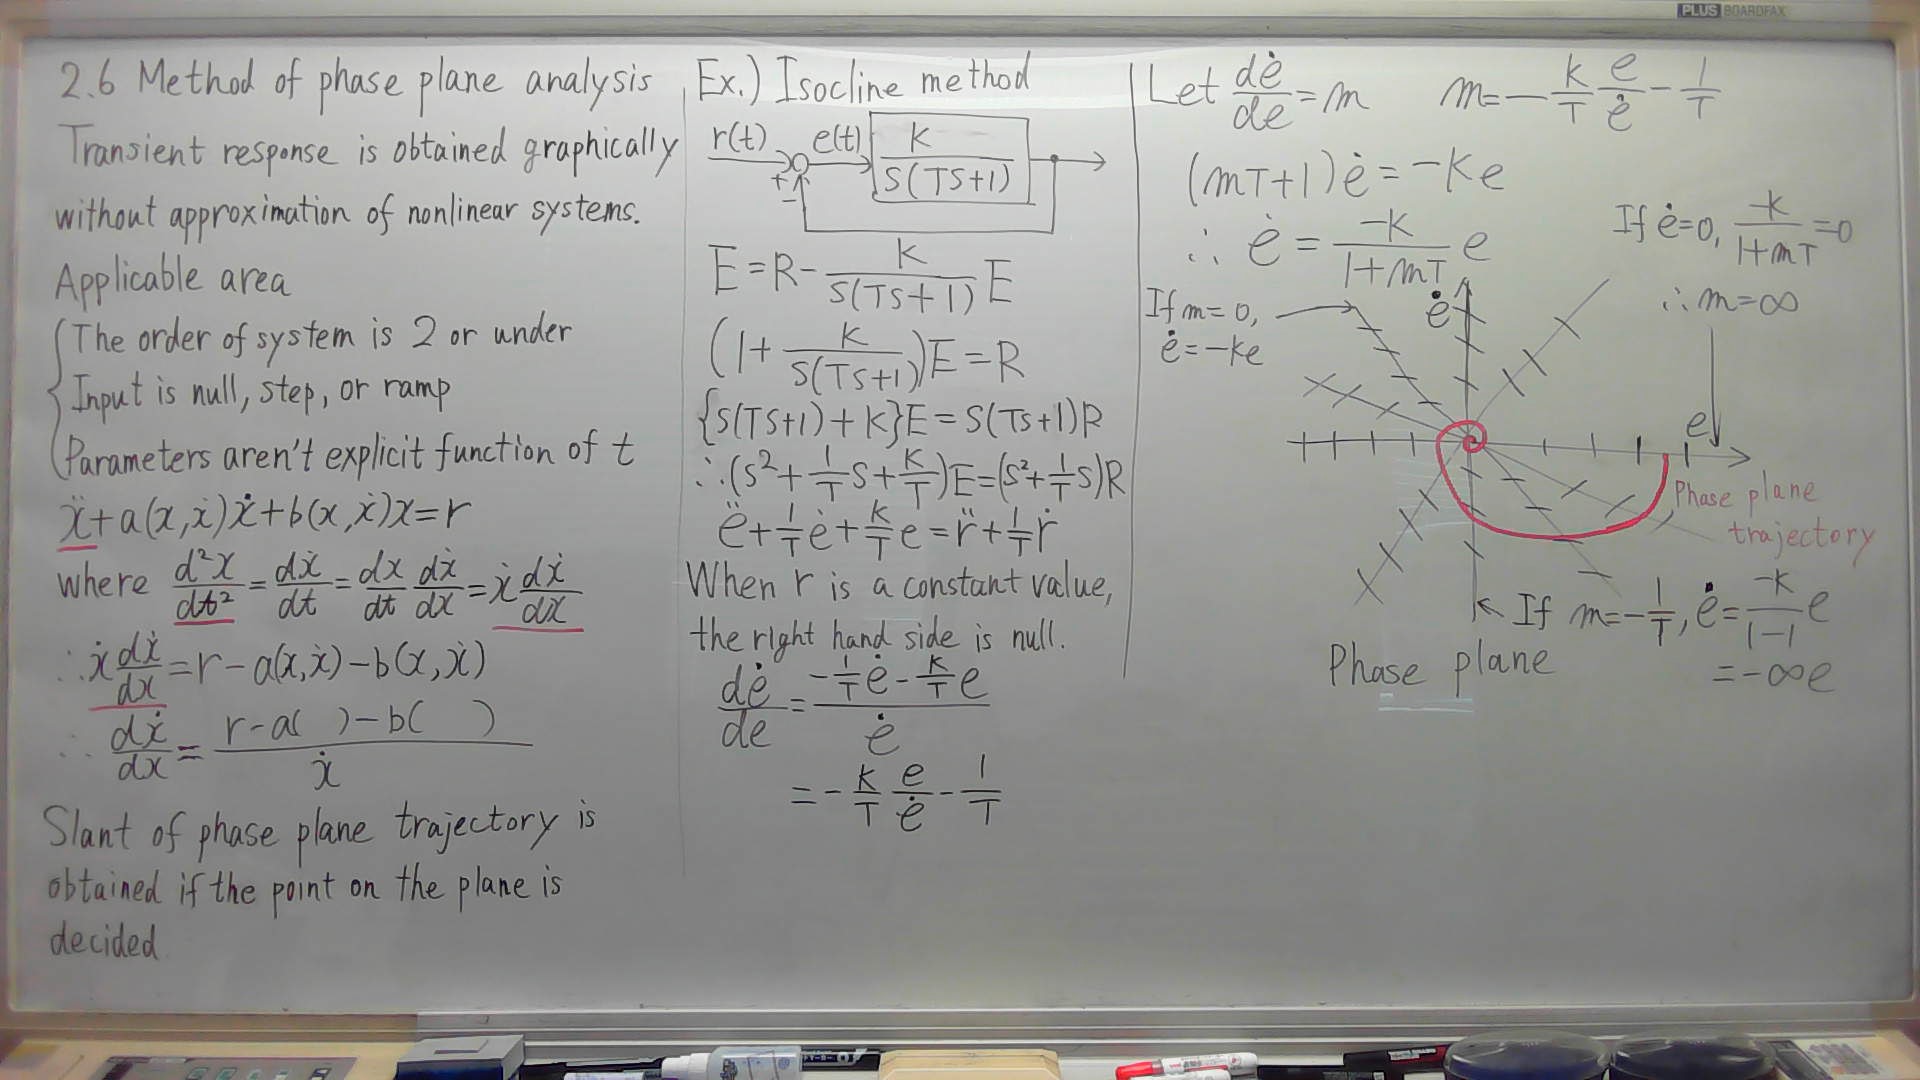 PLUS BOARDFAX
2.6 Method of phase plane analysis
Transient response is obtained graphically
without approximation of nonlinear systems.
Applicable area
{The order of system is 2 or under
Input is null, step, or ramp
Parameters aren't explicit function of t
ẍ+a(x,ẋ)ẋ+b(x,ẋ)x=r
where d²x/dt² = dẋ/dt = dx/dt dẋ/dx = ẋ dẋ/dx
∴ ẋ dẋ/dx = r-a(x,ẋ)-b(x,ẋ)
∴ dẋ/dx = (r-a( )-b( ))/ẋ
Slant of phase plane trajectory is
obtained if the point on the plane is
decided.
Ex.) Isocline method
r(t) + - e(t) K/S(TS+1)
E=R-K/S(TS+1) E
(1+K/S(TS+1))E=R
{S(TS+1)+K}E=S(TS+1)R
∴(S²+1/T S+K/T)E=(S²+1/T S)R
ë+1/T ė+K/T e=r̈+1/T ṙ
When r is a constant value,
the right hand side is null.
dė/de = (-1/T ė-K/T e)/ė
=-K/T e/ė-1/T
Let dė/de=m m=-K/T e/ė-1/T
(mT+1)ė=-Ke
∴ ė=-K/(1+mT) e
If ė=0, -K/(1+mT)=0
∴m=∞
If m=0,
ė=-Ke
ė
e
Phase plane
trajectory
If m=-1/T, ė=-K/(1-1) e
=-∞e
Phase plane